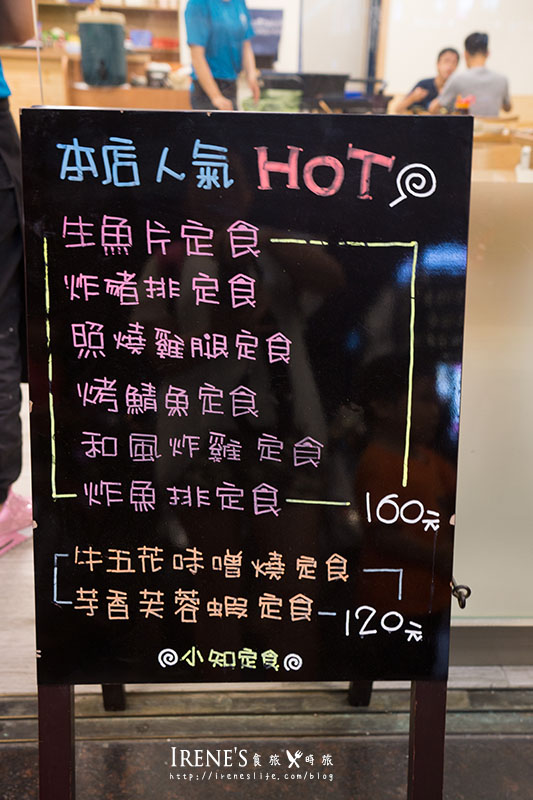 本店人氣 HOT
生魚片定食
炸豬排定食
照燒雞腿定食
烤鯖魚定食
和風炸雞定食
炸魚排定食
160元
牛五花味噌燒定食
芋香芙蓉蝦定食
120元
小知定食
IRENE'S 食旅 時旅
http://ireneslife.com/blog